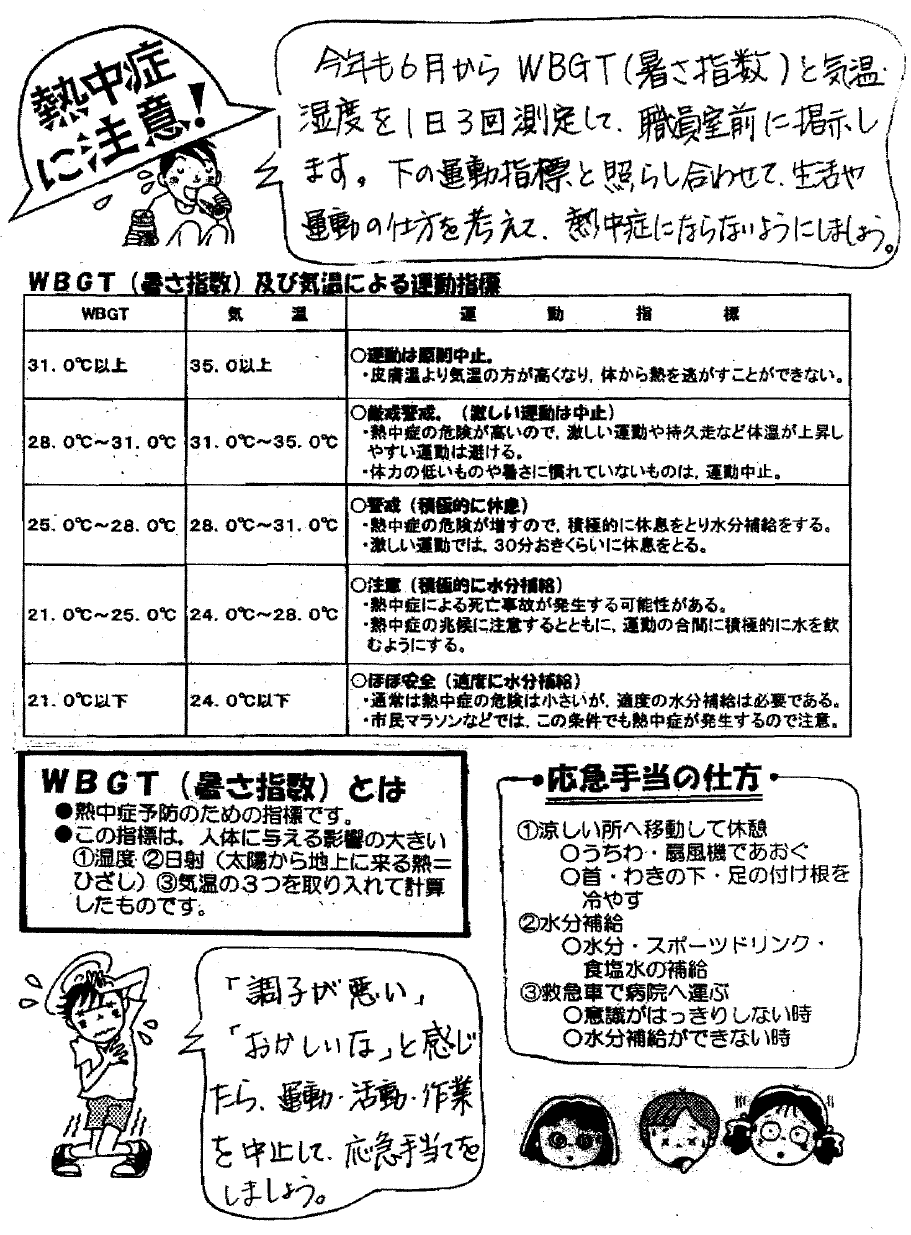 熱中症
に注意!
今年も6月から WBGT(暑さ指数)と気温・
湿度を1日3回測定して、職員室前に掲示し
ます。下の運動指標と照らし合わせて、生活や
運動の仕方を考えて、熱中症にならないようにしましょう。
WBGT(暑さ指数)及び気温による運動指標
WBGT 気温 運動指標
31.0℃以上 35.0以上
○運動は原則中止。
・皮膚温より気温の方が高くなり,体から熱を逃がすことができない。
28.0℃~31.0℃ 31.0℃~35.0℃
○厳戒警戒。(激しい運動は中止)
・熱中症の危険が高いので,激しい運動や持久走など体温が上昇し
やすい運動は避ける。
・体力の低いものや暑さに慣れていないものは,運動中止。
25.0℃~28.0℃ 28.0℃~31.0℃
○警戒(積極的に休息)
・熱中症の危険が増すので,積極的に休息をとり水分補給をする。
・激しい運動では,30分おきくらいに休息をとる。
21.0℃~25.0℃ 24.0℃~28.0℃
○注意(積極的に水分補給)
・熱中症による死亡事故が発生する可能性がある。
・熱中症の兆候に注意するとともに,運動の合間に積極的に水を飲
むようにする。
21.0℃以下 24.0℃以下
○ほぼ安全(適度に水分補給)
・通常は熱中症の危険は小さいが,適度の水分補給は必要である。
・市民マラソンなどでは,この条件でも熱中症が発生するので注意。
WBGT(暑さ指数)とは
●熱中症予防のための指標です。
●この指標は,人体に与える影響の大きい
①湿度 ②日射(太陽から地上に来る熱=
ひざし)③気温の3つを取り入れて計算
したものです。
・応急手当の仕方・
①涼しい所へ移動して休憩
○うちわ・扇風機であおぐ
○首・わきの下・足の付け根を
冷やす
②水分補給
○水分・スポーツドリンク・
食塩水の補給
③救急車で病院へ運ぶ
○意識がはっきりしない時
○水分補給ができない時
「調子が悪い」
「おかしいな」と感じ
たら、運動・活動・作業
を中止して、応急手当てを
しましょう。